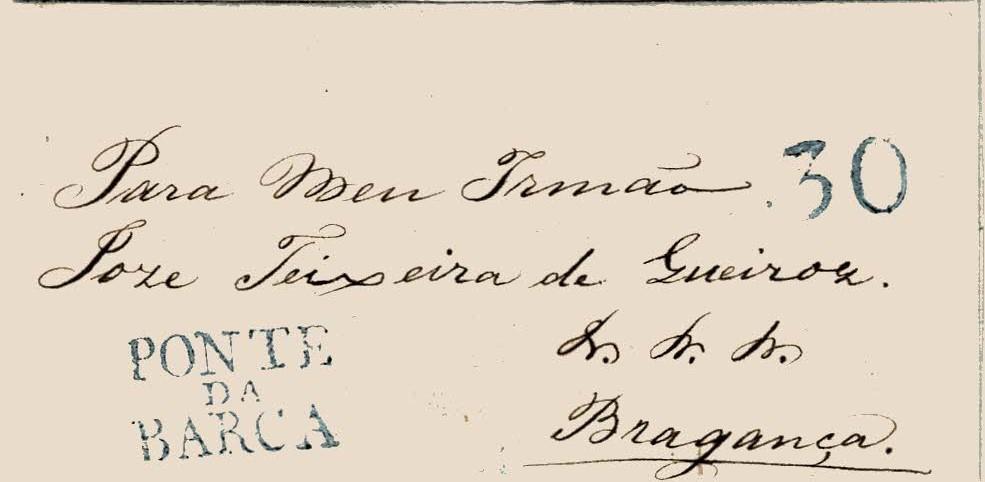 Para Meu Irmão 30
Joze Teixeira de Queiroz.
Bragança.
PONTE
DA
BARCA